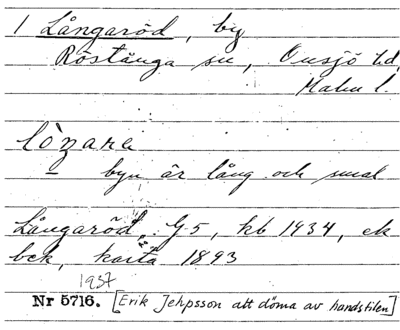 1 Långaröd, by
Röstånga sn, Onsjö hd,
Malm l.
lòŋara
byn är lång och smal
Långaröd, G 5, kb 1934, ek
bek, karta 1893
1937
Nr 5716. [Erik Jeppsson att döma av handstilen]